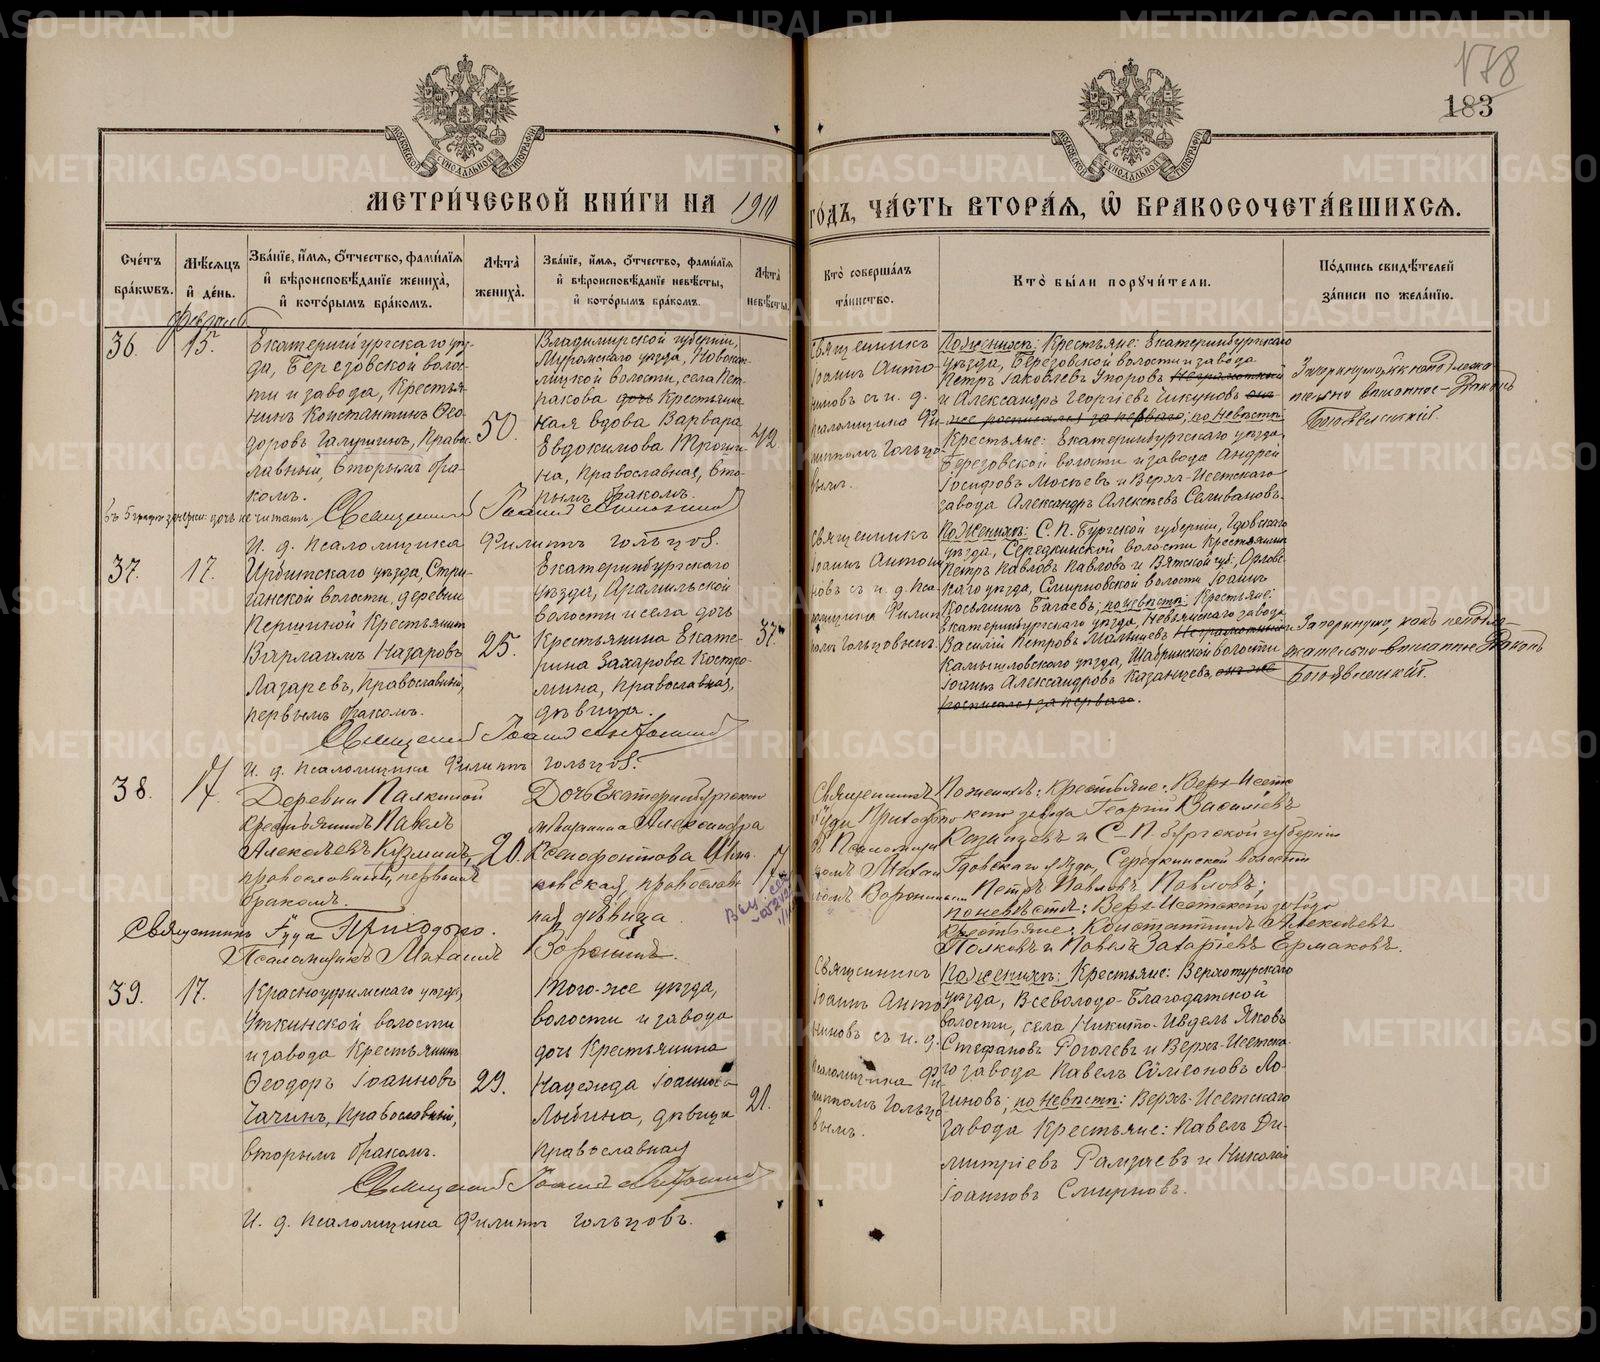 178
183
МОСКОВСКОЙ СУНОДАЛЬНОЙ ТИПОГРАФІИ
МОСКОВСКОЙ СУНОДАЛЬНОЙ ТИПОГРАФІИ
МЕТРИ́ЧЕСКОЙ КНИ́ГИ НА 1910
ГО́ДЪ, ЧА́СТЬ ВТОРА́Я, Ѡ҆ БРАКОСОЧЕТА́ВШИХСЯ.
Сче́тъ бра́кѡвъ.
Мѣ́сяцъ и҆ де́нь.
Зва́нїе, и҆́мя, ѻ҆́тчество, фами́лїя
и҆ вѣроисповѣ́данїе жениха̀,
и҆ кото́рымъ бра́комъ.
Лѣ́та̀ жениха̀.
Зва́нїе, и҆́мя, ѻ҆́тчество, фами́лїя
и҆ вѣроисповѣ́данїе невѣ́сты,
и҆ кото́рымъ бра́комъ.
Лѣ́та̀ невѣ́сты.
Кто̀ соверша́лъ та́инство.
Кто̀ бы́ли порꙋчи́тели.
По́дпись свидѣ́телей
за́писи по жела́нїю.
Февраль
36.
15.
Екатеринбургскаго уѣз-
да, Березовской волос-
ти и завода, Крестья-
нинъ Константинъ Ѳео-
доровъ Галушинъ, Право-
лавный, вторымъ бра-
комъ.
50.
Владимирской губерніи,
Муромскаго уѣзда, Новокот-
лицкой волости, села Пет-
ракова дочь Крестьянс
кая вдова Варвара
Евдокимова Трони-
на, Православная, вто-
рымъ бракомъ.
42
Священникъ
Іоаннъ Анто-
ниновъ съ и. д.
псаломщика Фи-
липпомъ Гольцо-
вымъ.
По женихѣ: Крестьяне: Екатеринбургскаго
уѣзда, Березовской волости и завода
Петръ Іаковлевъ Упоровъ неграмотный
и Александръ Георгіевъ Чикуновъ он-
же росписался за перваго; по невѣстѣ:
Крестьяне: Екатеринбургскаго уѣзда,
Березовской волости и завода Андрей
Іосифовъ Москвевъ и Верхъ-Исетскаго
завода Александръ Алексѣевъ Селивановъ.
Зачеркнутое
Богоявленскій.
Священникъ Іоаннъ Антонинъ
И. д. псаломщика Филиппъ Гольцовъ.
37.
17.
Ирбитскаго уѣзда, Стри-
ганской волости, деревни
Першиной Крестьянинъ
Варлаамъ Назаровъ
Лазаревъ, Православный,
первымъ бракомъ.
25.
Екатеринбургскаго
уѣзда, Арамильской
волости и села дочь
Крестьянина Екате-
рина Захарова Костро-
мина, Православная,
дѣвица.
37
Священникъ
Іоаннъ Антони
новъ съ и. д. пса
ломщика Филип
помъ Гольцовымъ.
По Женихѣ: С. П. Бургской губерніи, Гдовскаго
уѣзда, Середкинской волости Крестьянинъ
Петръ Павловъ Павловъ и Вятской губ., Орловс-
каго уѣзда, Смирновской волости Іоаннъ
Косьминъ Багаевъ; по невѣстѣ: Крестьяне:
Екатеринбургскаго уѣзда, Невьянскаго завода
Василій Петровъ Мальцевъ неграмотный и
Камышловскаго уѣзда, Шабринской волости
Іоаннъ Александровъ Казанцевъ, онъ же
росписался за перваго.
Зачеркнуто, какъ неподле-
жательно вписанное Діаконъ
Богоявленскій.
Священникъ Іоаннъ Антонинъ
И. д. псаломщика Филиппъ Гольцовъ.
38.
17.
Деревни Палкиной
крестьянинъ Павелъ
Алексѣевъ Кузминъ,
православный, первымъ
бракомъ.
20.
Дочь Екатеринбургскаго
мѣщанина Александра
Ксенофонтова
православ
ная дѣвица
17
Священникъ
Іуда Приходько
и Псаломщи
комъ Михаи
ломъ Воронинымъ
По женихѣ: крестьяне: Верх-Исетс
каго завода Георгій Василіевъ
Казанцевъ и С-П. бургской губерніи
Гдовскаго уѣзда, Середкинской волости
Петръ Павловъ Павловъ;
по невѣстѣ: Верх-Исетскаго завода
крестьяне: Константинъ Алексѣевъ
Полковъ и Павелъ Захаріевъ Ермаковъ.
Священникъ Іуда Приходько.
Псаломщикъ Михаилъ Воронинъ.
39.
17.
Красноуфимскаго уѣзда,
Уткинской волости
и завода Крестьянинъ
Ѳеодоръ Іоанновъ
Чачинъ, Православный,
вторымъ бракомъ.
29.
Того-же уѣзда,
волости и завода
дочь Крестьянина
Надежда Іоаннова
Лыбина, дѣвица
Православная
21.
Священникъ
Іоаннъ Анто
ниновъ съ и. д.
псаломщика Фи
липпомъ Гольцо
вымъ.
По женихѣ: Крестьяне: Верхотурскаго
уѣзда, Всеволодо-Благодатской
волости, села Никито-Ивдель Яковъ
Стефановъ Роголевъ и Верхъ-Исетска-
го завода Павелъ Сѵмеоновъ Ло-
гиновъ; по невѣстѣ: Верхъ-Исетскаго
завода Крестьяне: Павелъ Ди-
митріевъ Рамзаевъ и Николай
Іоанновъ Смирновъ.
Священникъ Іоаннъ Антонинъ
И. д. псаломщика Филиппъ Гольцовъ.
METRIKI.GASO-URAL.RU